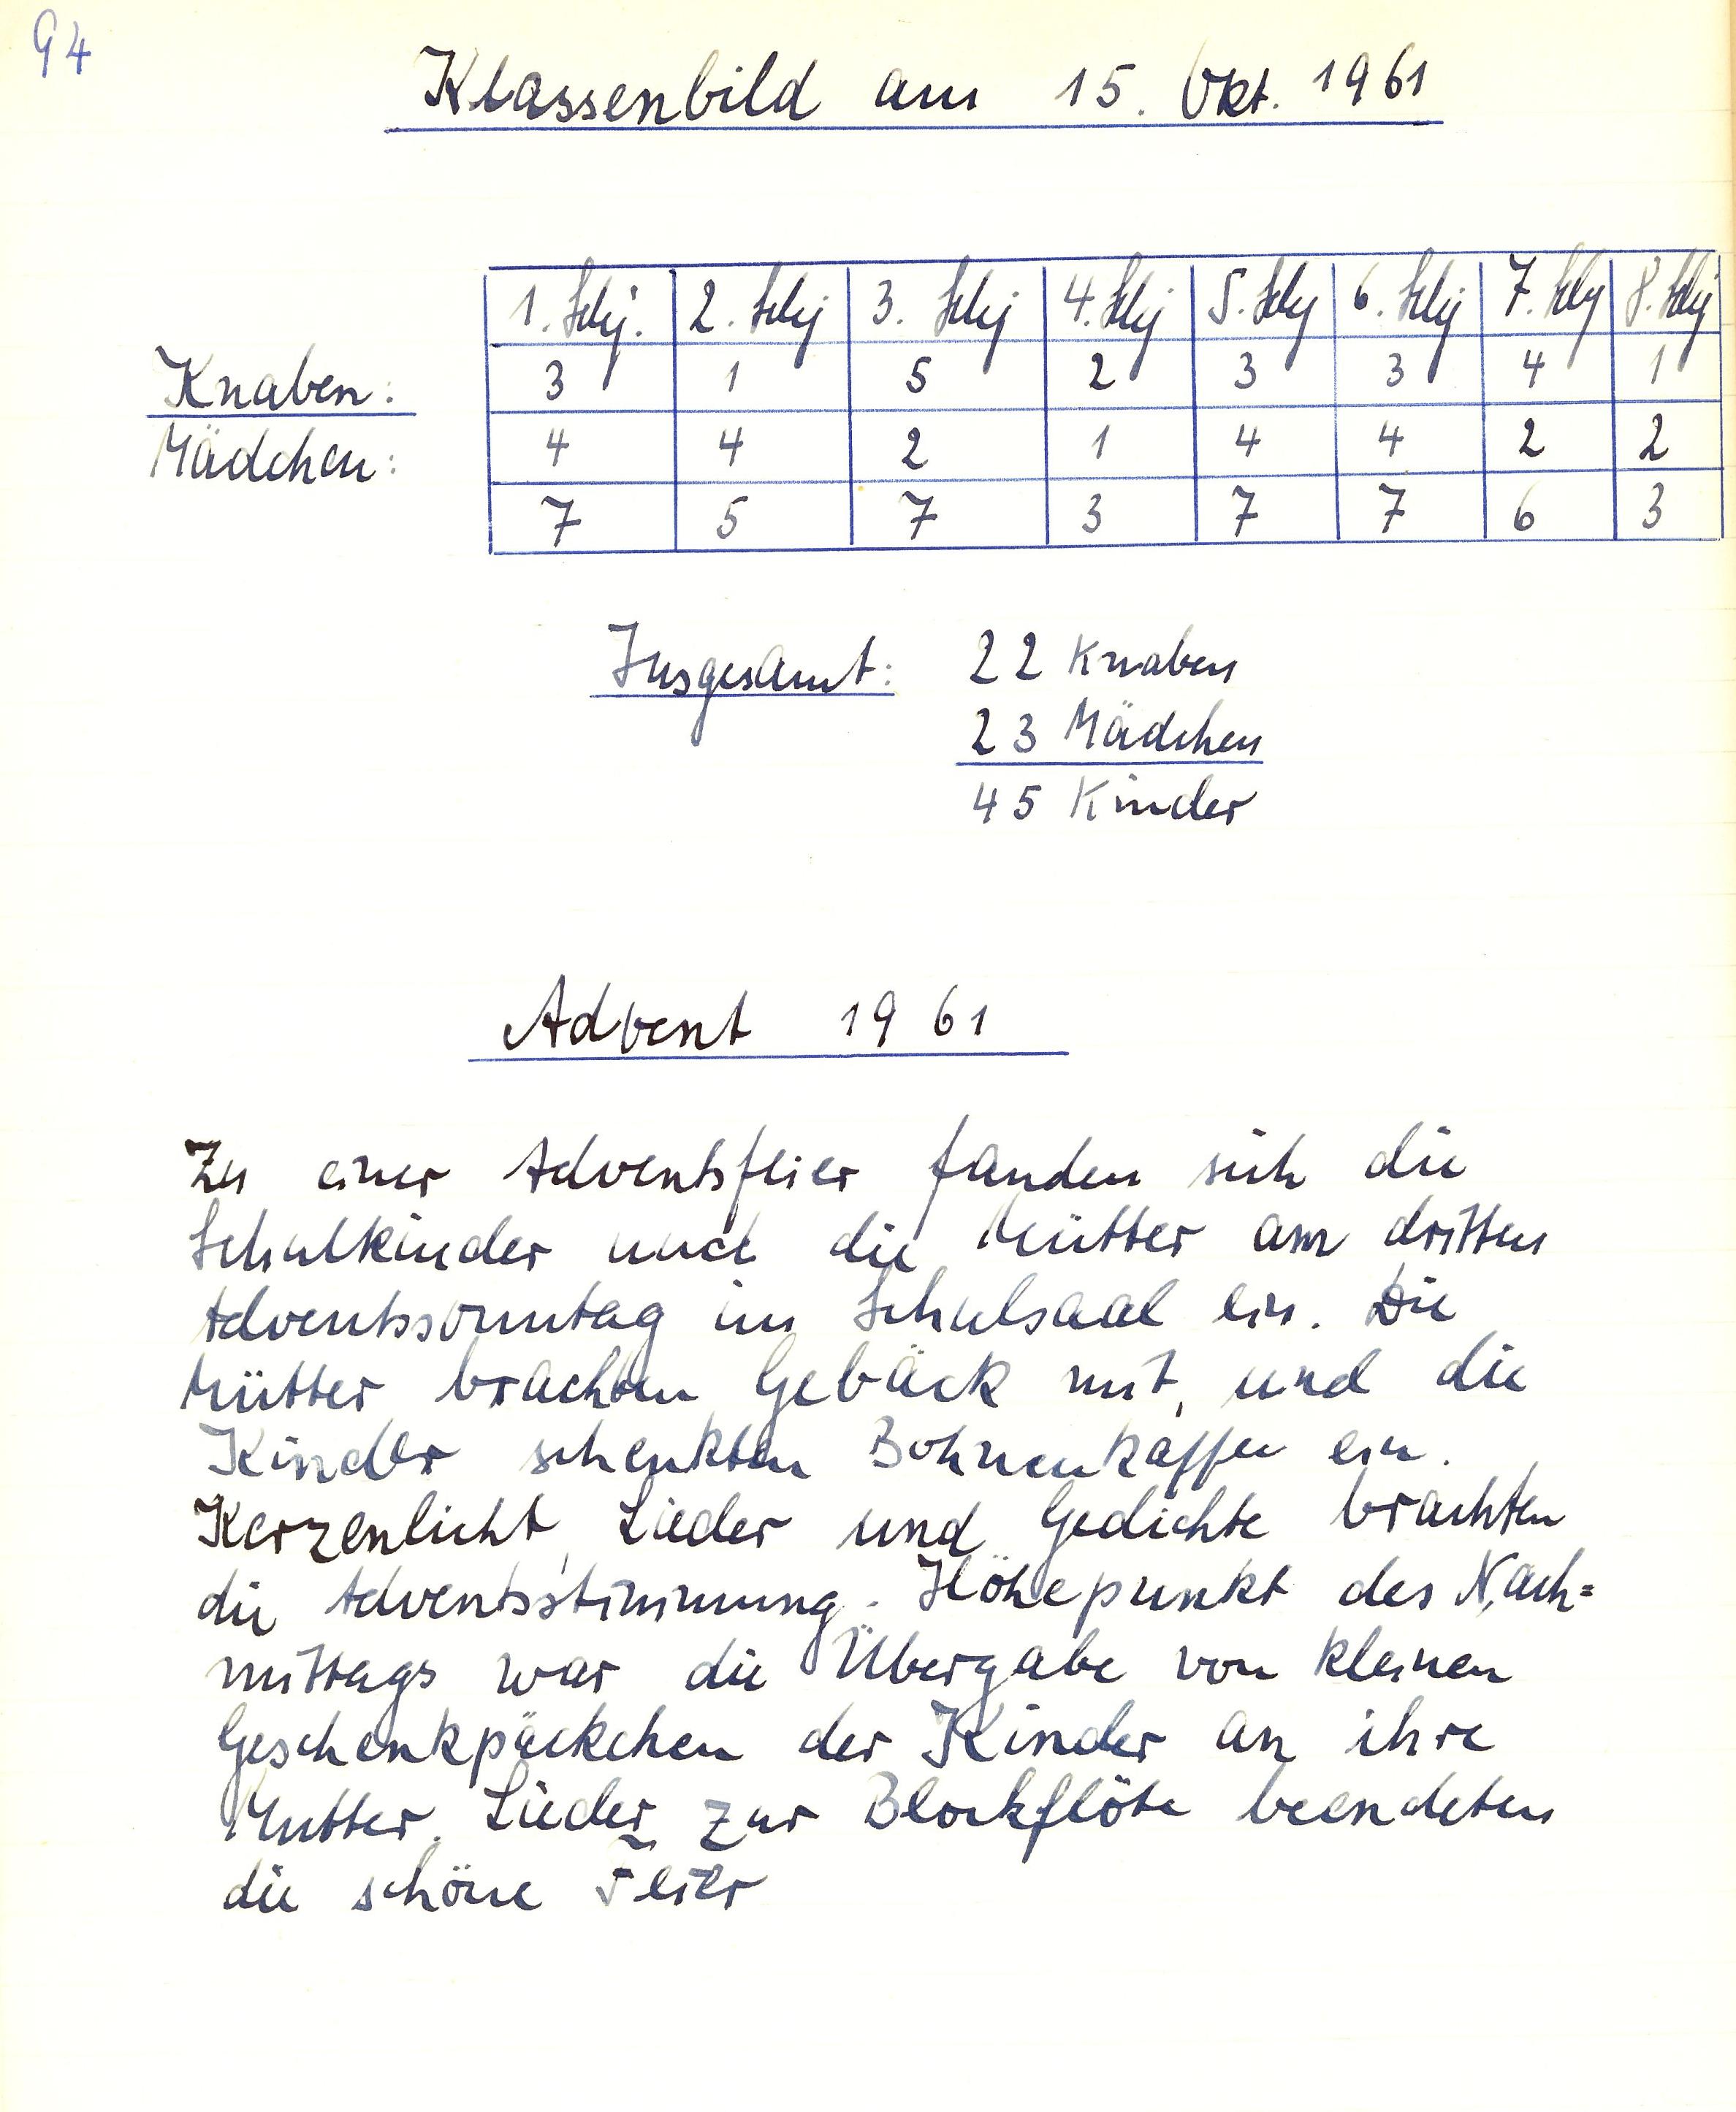 94
Klassenbild am 15. Okt. 1961
1. Schj. 2. Schj 3. Schj 4. Schj 5. Schj 6. Schj 7. Schj 8. Schj
Knaben: 3 1 5 2 3 3 4 1
Mädchen: 4 4 2 1 4 4 2 2
7 5 7 3 7 7 6 3
Insgesamt: 22 Knaben
23 Mädchen
45 Kinder
Advent 1961
Zu einer Adventsfeier fanden sich die
Schulkinder und die Mütter am dritten
Adventssonntag im Schulsaal ein. Die
Mütter brachten Gebäck mit, und die
Kinder schenkten Bohnenkaffee ein.
Kerzenlicht, Lieder und Gedichte brachten
die Adventsstimmung. Höhepunkt des Nach=
mittags war die Übergabe von kleinen
Geschenkpäckchen der Kinder an ihre
Mutter. Lieder zur Blockflöte beendeten
die schöne Feier